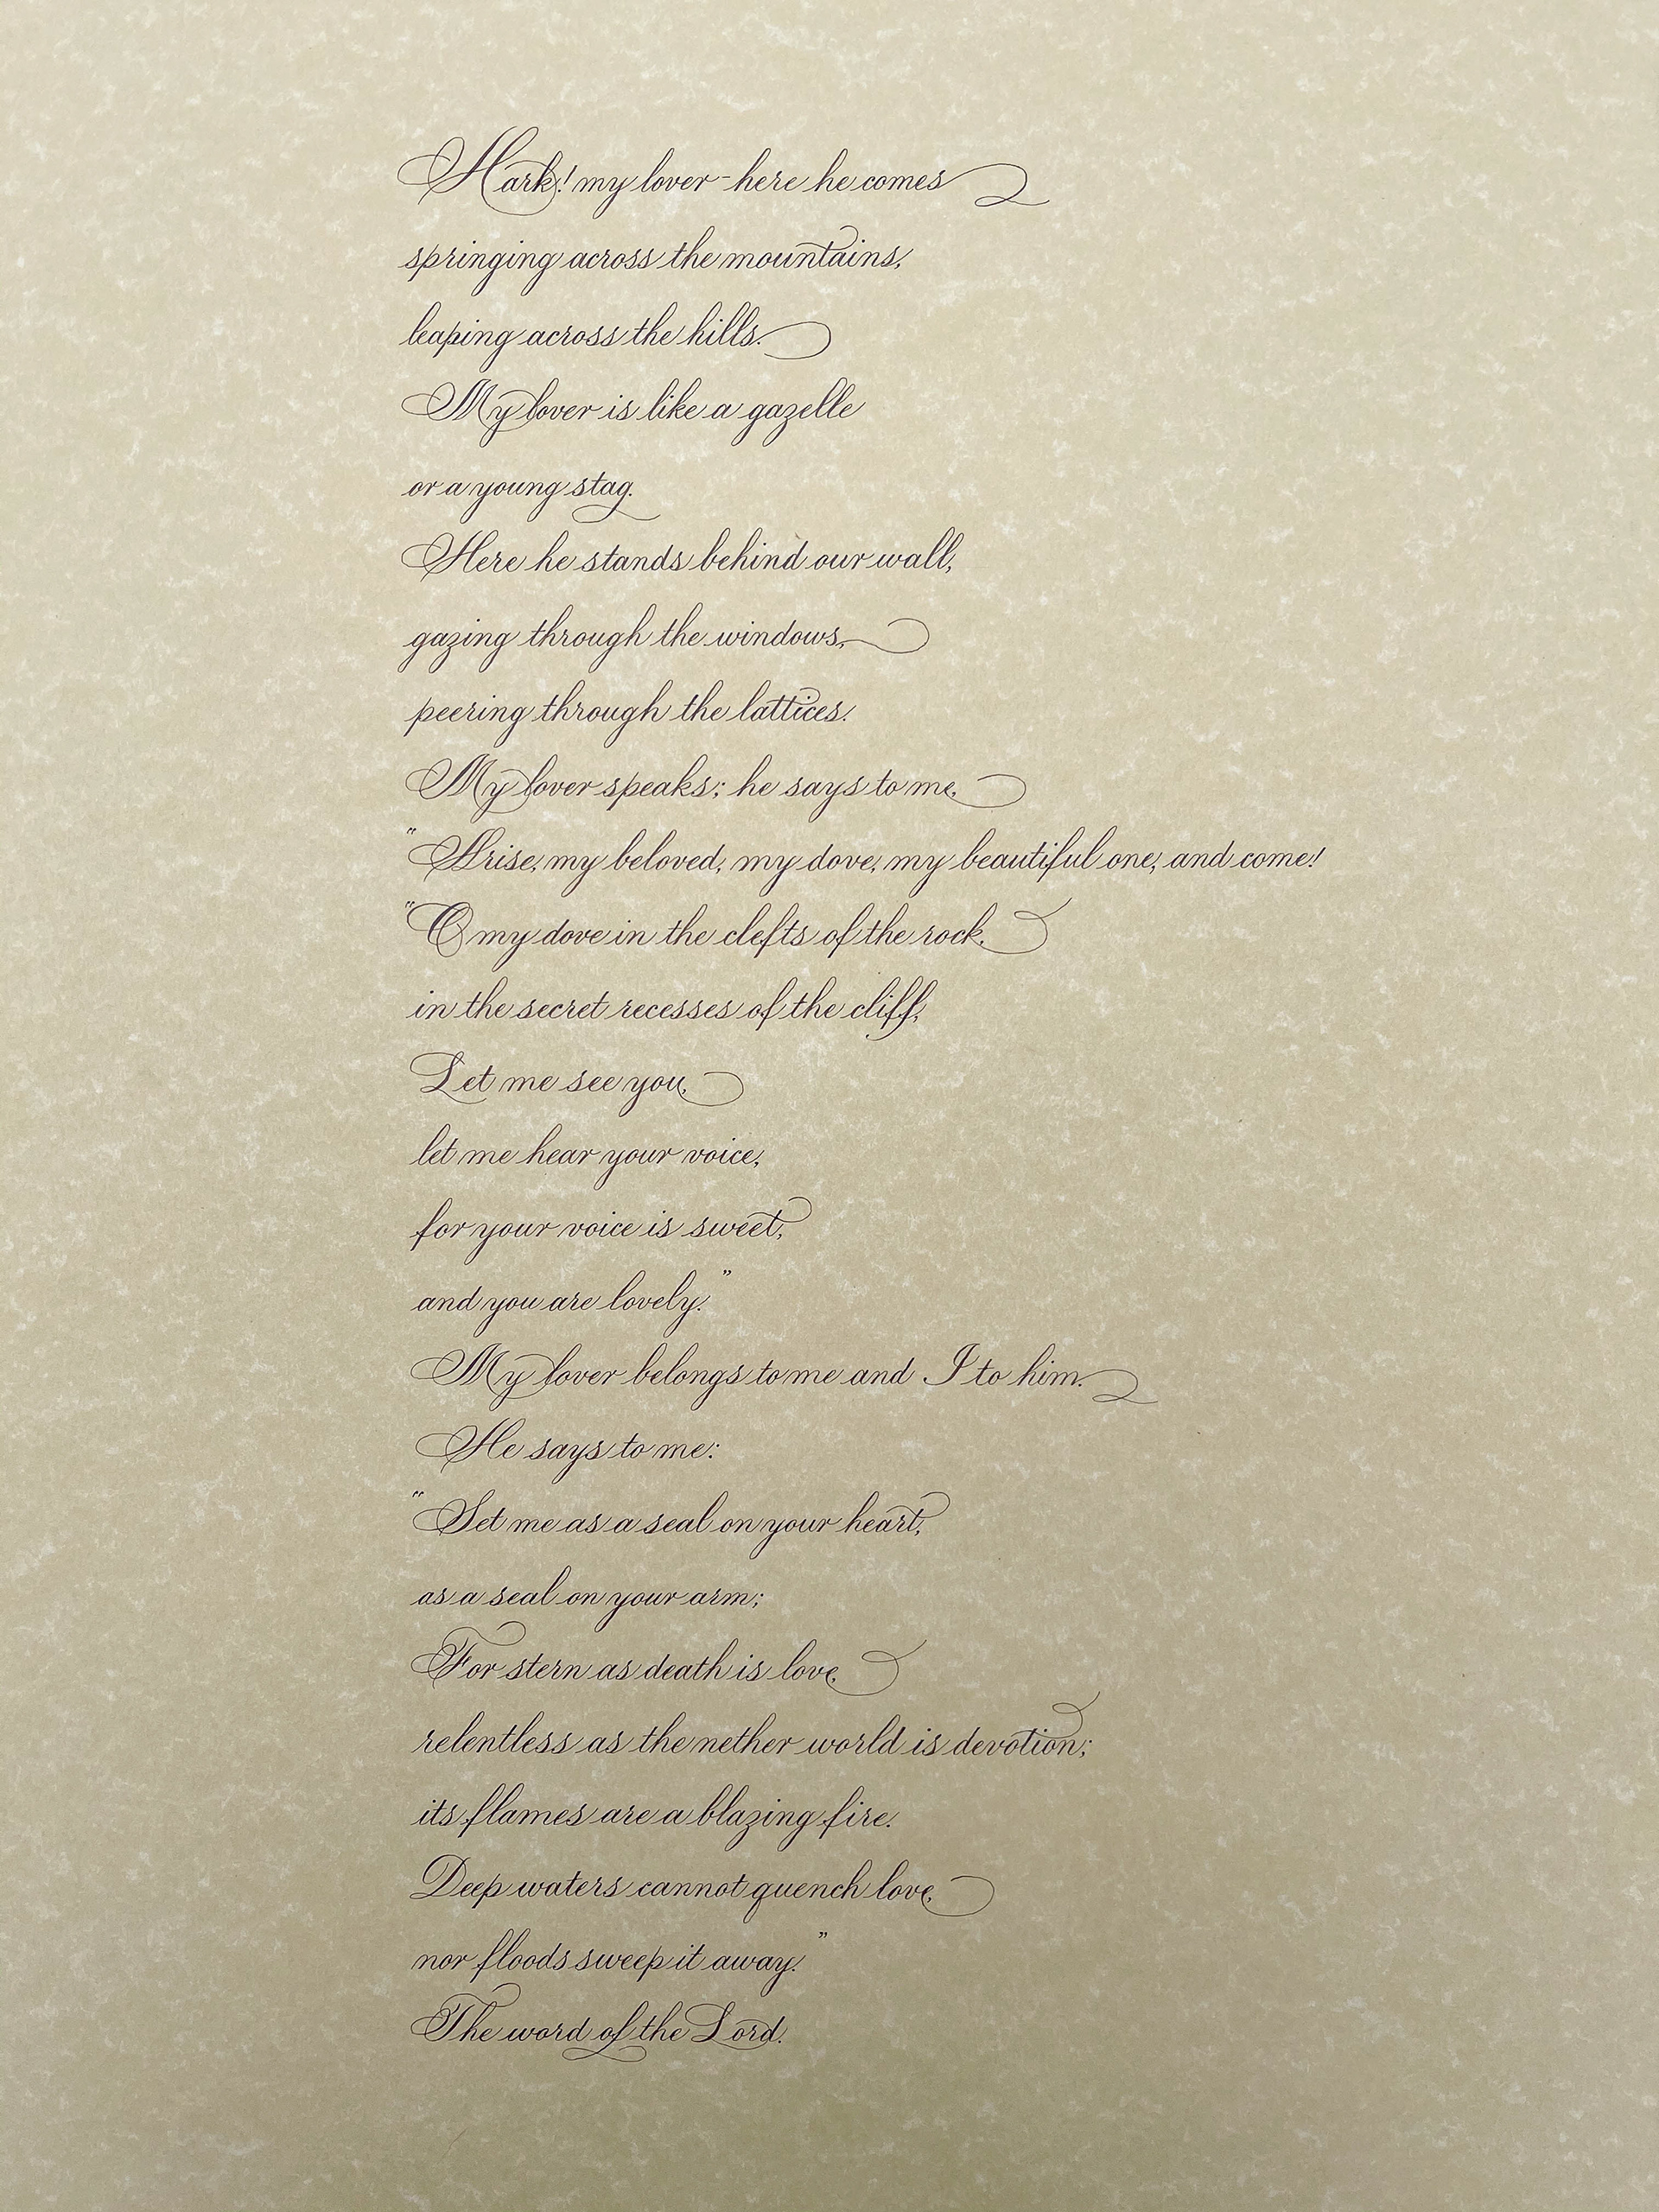 Hark! my lover - here he comes
springing across the mountains,
leaping across the hills.
My lover is like a gazelle
or a young stag.
Here he stands behind our wall,
gazing through the windows,
peering through the lattices.
My lover speaks; he says to me,
"Arise, my beloved, my dove, my beautiful one, and come!
"O my dove in the clefts of the rock,
in the secret recesses of the cliff,
Let me see you,
let me hear your voice,
for your voice is sweet,
and you are lovely."
My lover belongs to me and I to him.
He says to me:
"Set me as a seal on your heart,
as a seal on your arm;
For stern as death is love,
relentless as the nether world is devotion;
its flames are a blazing fire.
Deep waters cannot quench love,
nor floods sweep it away."
The word of the Lord.